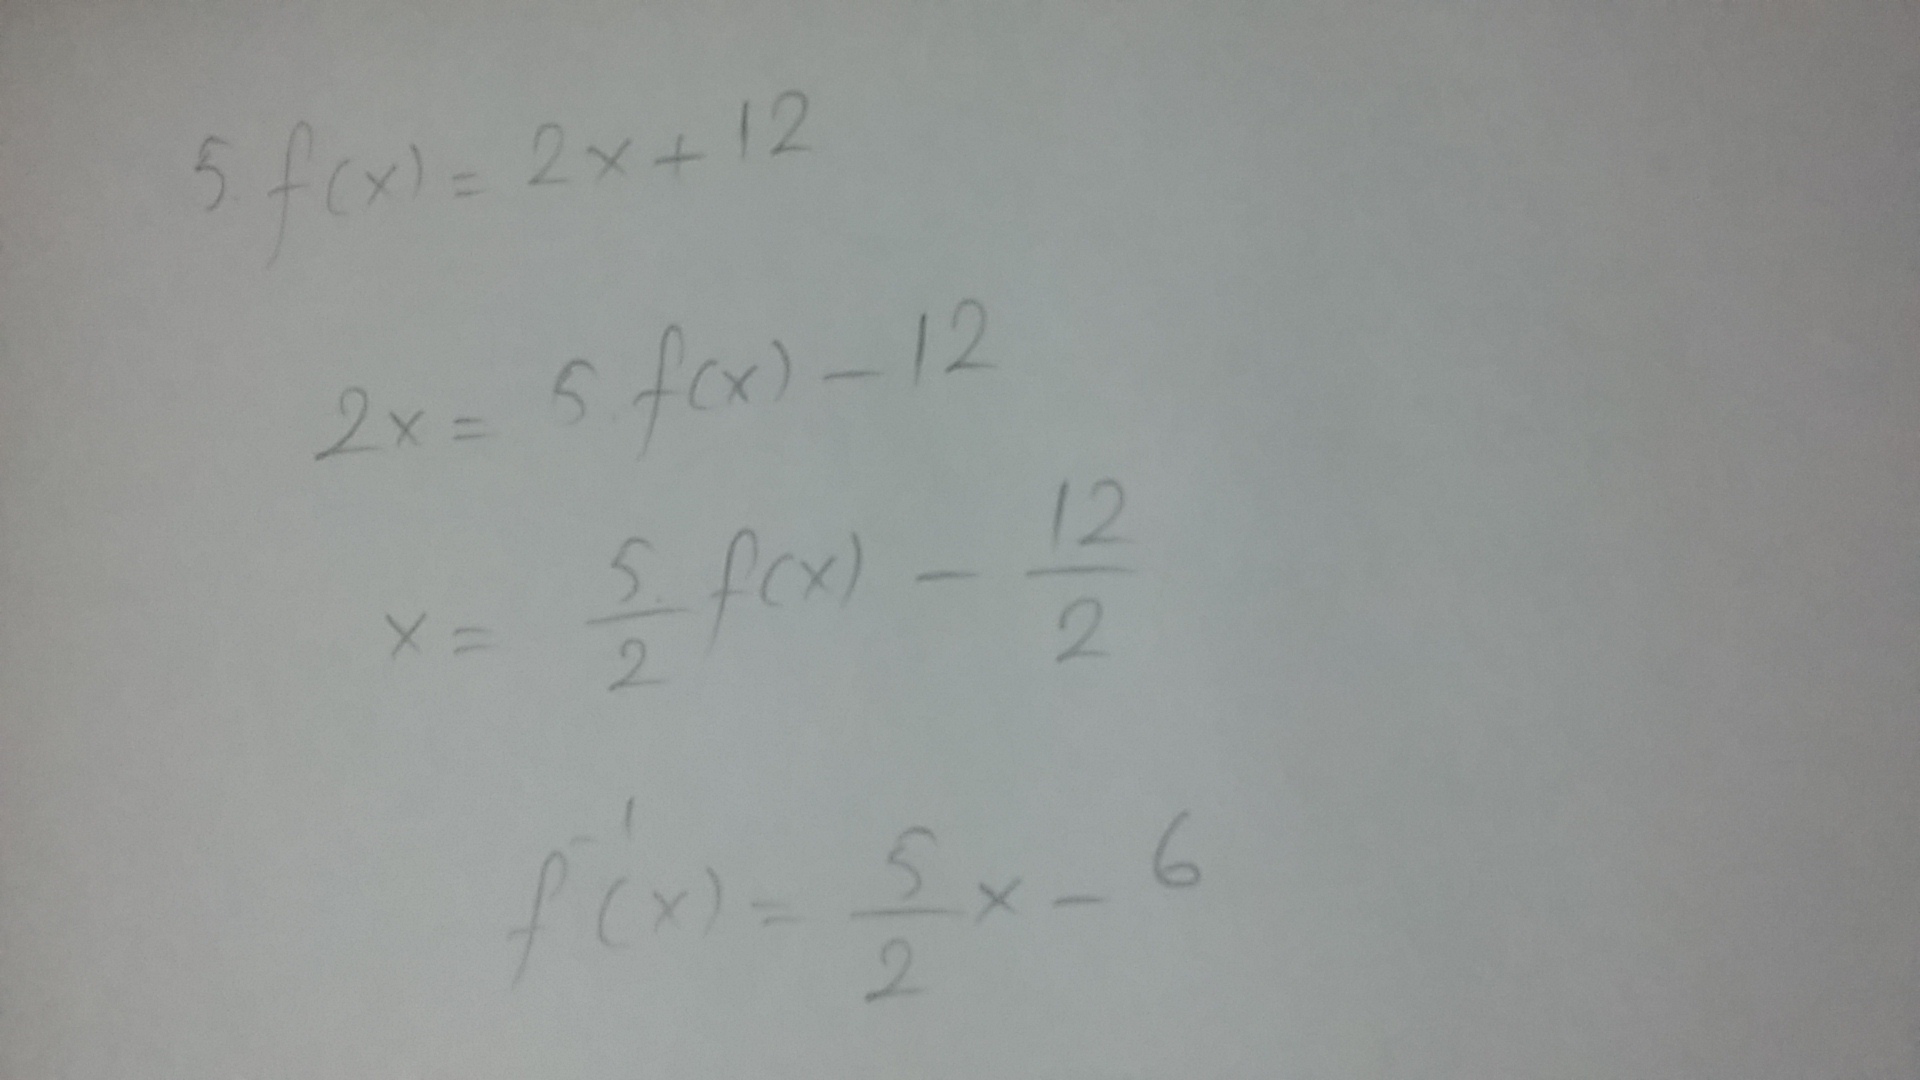 5 f(x) = 2x + 12
2x = 5 f(x) - 12
x = 5/2 f(x) - 12/2
f⁻¹(x) = 5/2 x - 6